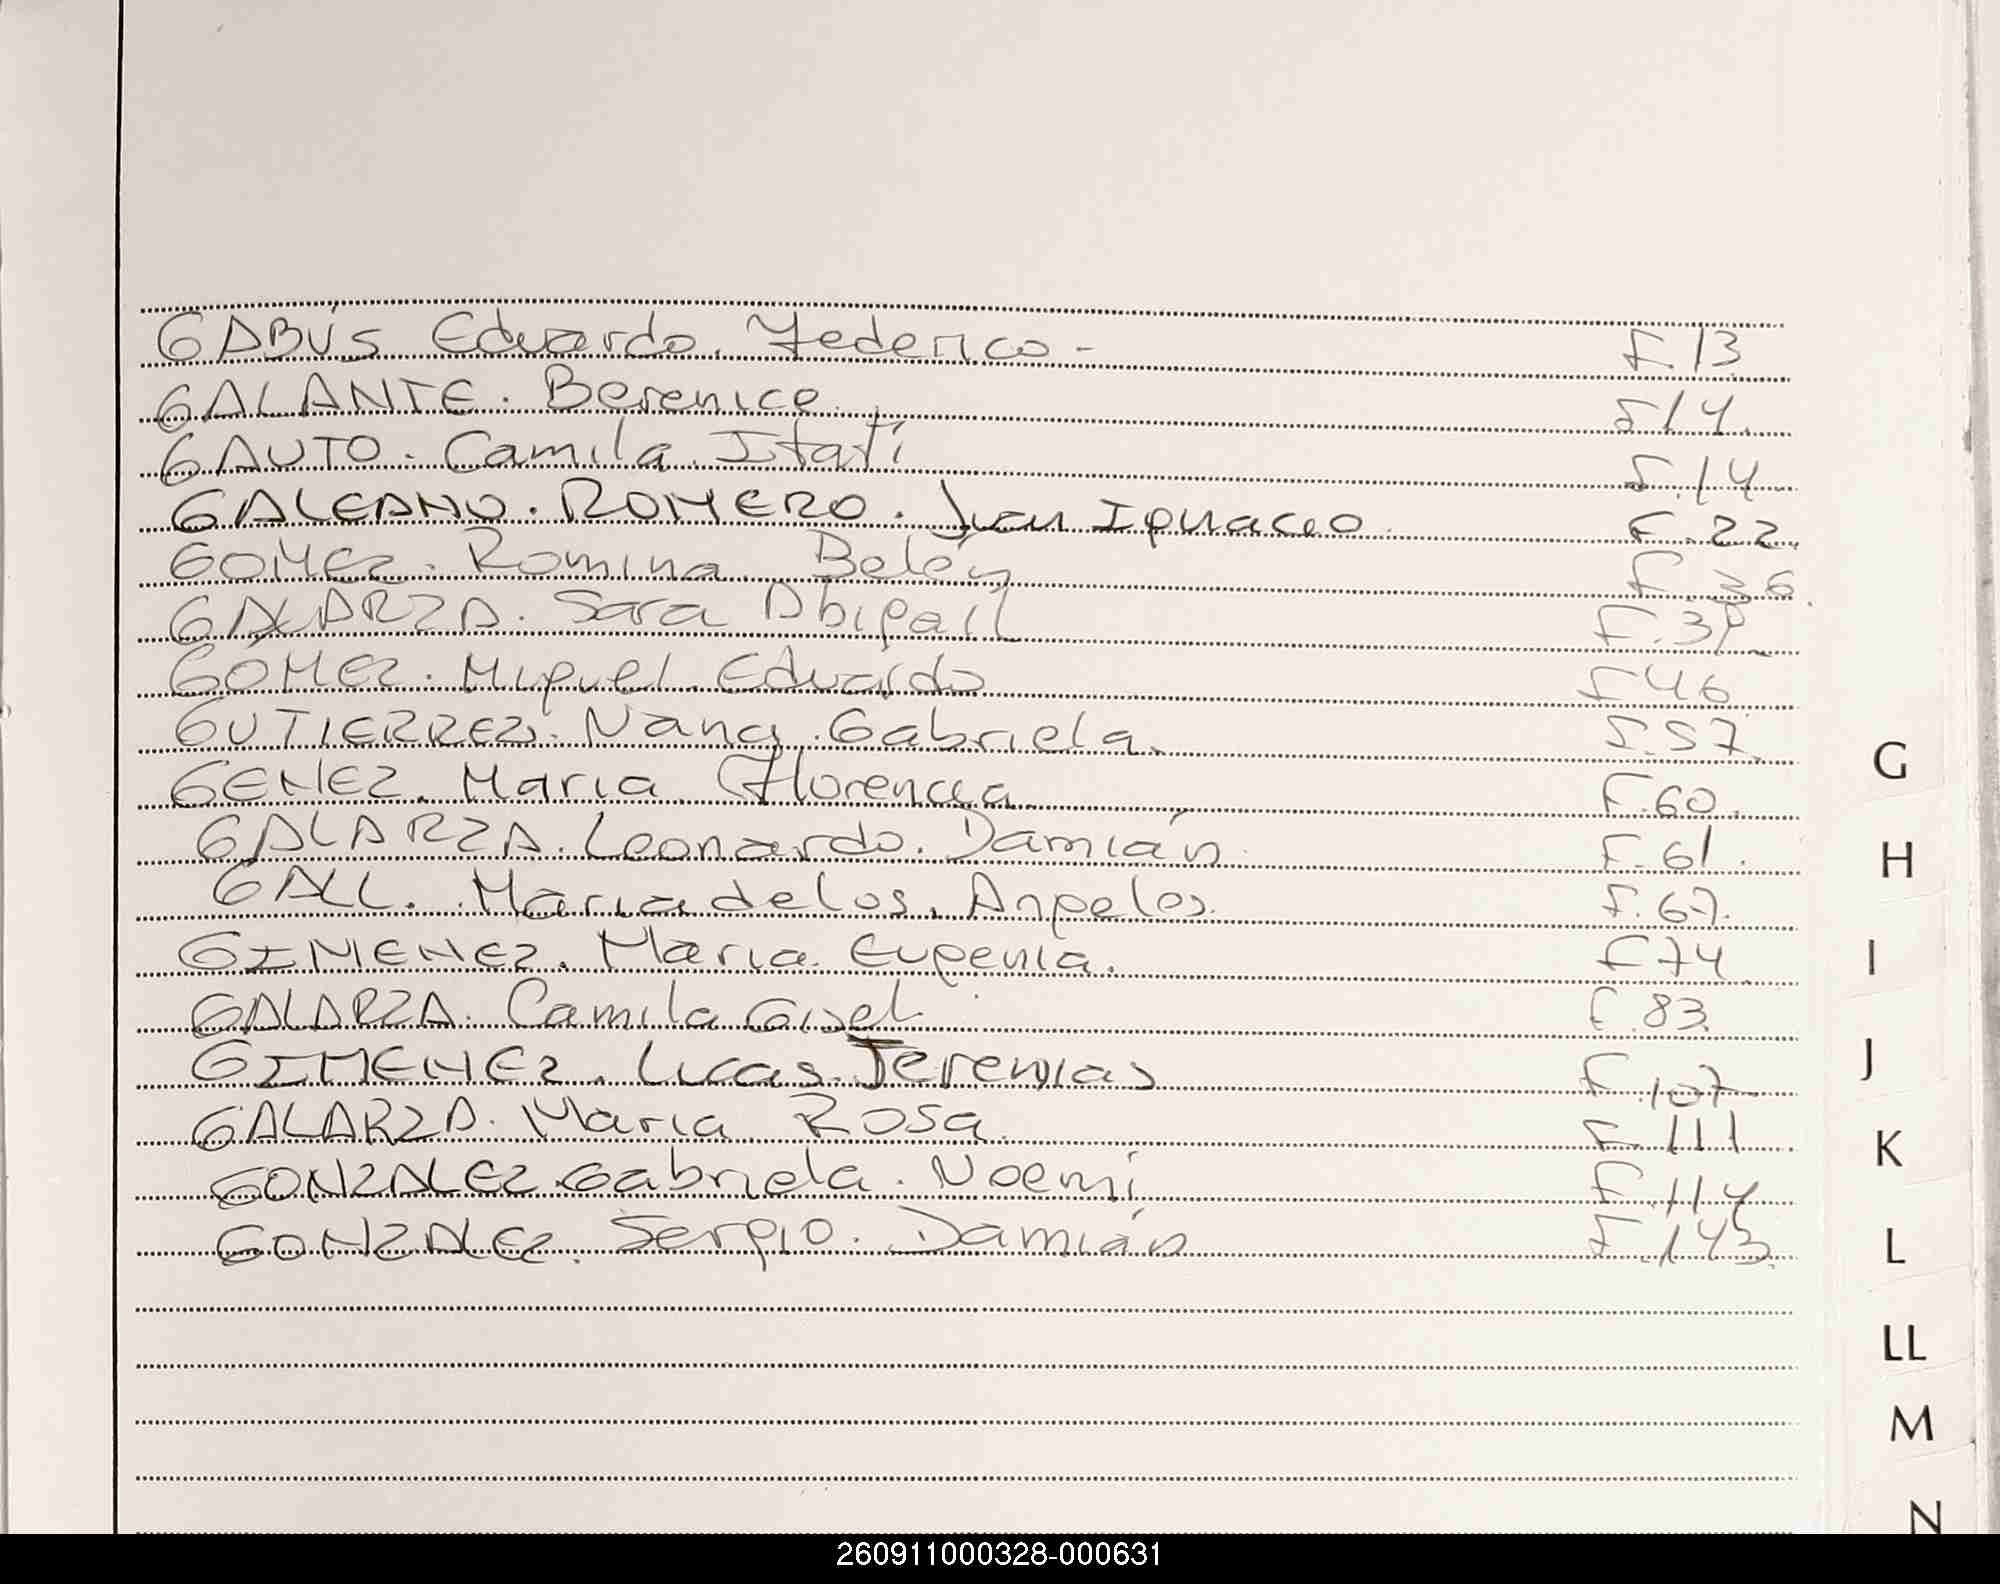 GABÚS Eduardo. Federico -    F. 13
GALANTE. Berenice    F 14.
GAUTO. Camila Itatí    F. 14
GALEANO. ROMERO. Juan Ignacio    F. 22.
GOMEZ. Romina Belén    F. 36.
GALARZA. Sara Abigail    F.
GOMEZ. Miguel Eduardo    F 46
GUTIERREZ. Nancy Gabriela.    F. 57
GENEZ. Maria Florencia    F. 60.
GALARZA. Leonardo. Damián    F. 61.
GALL. Maria de los Angeles    F. 67.
GIMENEZ. Maria Eugenia.    F 74
GALARZA. Camila Gisel    F. 83.
GIMENEZ. Lucas Jeremias    F. 107
GALARZA. Maria Rosa    F. 111
GONZALEZ. Gabriela. Noemi    F. 114
GONZALEZ. Sergio. Damián    F. 143.
G
H
I
J
K
L
LL
M
N
260911000328-000631